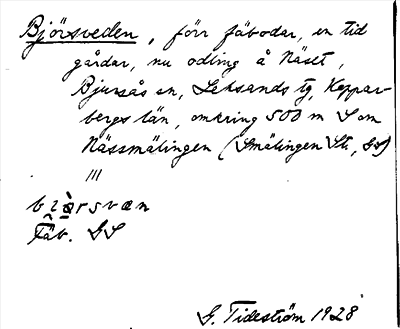 Björsveden, förr fäbodar, en tid
gårdar, nu odling å Näset,
Bjursås sn, Leksands tg, Koppar-
bergs län, omkring 500 m S om
Nässmälingen (Smälingen St, GS)
III
Fäb. GS
G. Tideström 1928